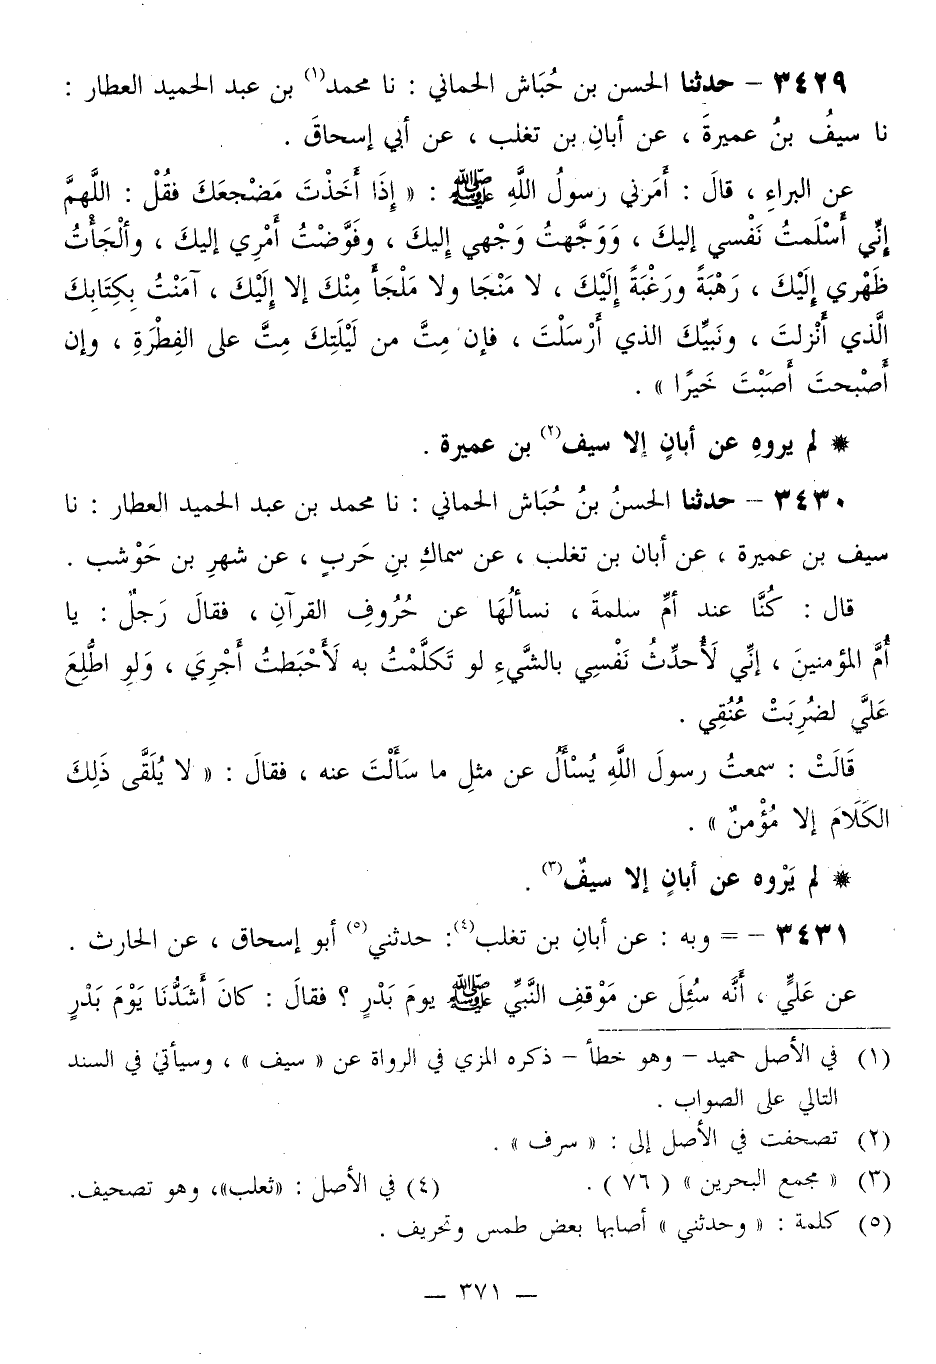 ٣٤٢٩ – حدثنا الحسن بن حُبَاش الحماني : نا محمد(١) بن عبد الحميد العطار :
نا سيفُ بنُ عميرةَ ، عن أبانِ بن تغلب ، عن أبي إسحاقَ .
عن البراءِ ، قالَ : أَمَرني رسولُ اللَّهِ ﷺ : « إِذَا أَخَذْتَ مَضْجعَكَ فقُلْ : اللَّهمَّ
إِنِّي أَسْلَمتُ نَفْسي إليكَ ، وَوَجَّهتُ وَجْهي إِليكَ ، وفَوَّضْتُ أَمْرِي إليكَ ، وألْجَأْتُ
ظَهْري إِلَيْكَ ، رَهْبَةً ورَغْبَةً إِلَيْكَ ، لا مَنْجَا ولا مَلْجَأَ مِنْكَ إلا إِلَيْكَ ، آمَنْتُ بِكِتَابِكَ
الَّذي أَنْزلتَ ، ونَبيِّكَ الذي أَرْسَلْتَ ، فإن مِتَّ من لَيْلَتِكَ مِتَّ على الفِطْرَةِ ، وإن
أَصْبحتَ أَصَبْتَ خَيرًا » .
* لم يروهِ عن أبانٍ إلا سيف(٢) بن عميرة .
٣٤٣٠ – حدثنا الحسنُ بنُ حُبَاش الحماني : نا محمد بن عبد الحميد العطار : نا
سيف بن عميرة ، عن أبان بن تغلب ، عن سماكِ بنِ حَربٍ ، عن شهرِ بن حَوْشب .
قال : كُنَّا عند أمِّ سلمةَ ، نسألُهَا عن حُرُوفِ القرآنِ ، فقالَ رَجلٌ : يا
أُمَّ المؤمنينَ ، إنِّي لَأُحدِّثُ نَفْسِي بالشَّيءِ لو تَكلَّمْتُ به لَأَحْبَطتُ أَجْرِيَ ، وَلوِ اطُّلِعَ
عَليَّ لضُرِبَتْ عُنُقِي .
قَالَتْ : سمعتُ رسولَ اللَّهِ يُسْأَلُ عن مثلِ ما سَأَلْتَ عنه ، فقالَ : « لا يُلَقَّى ذَلِكَ
الكَلَامَ إلا مُؤْمنٌ » .
* لم يَرْوه عن أبانٍ إلا سيفٌ(٣) .
٣٤٣١ – = وبه : عن أبانِ بن تغلب(٤): حدثني(٥) أبو إسحاق ، عن الحارث .
عن عَليٍّ ، أَنَّه سُئِلَ عن مَوْقفِ النَّبيِّ ﷺ يومَ بَدْرٍ ؟ فقالَ : كانَ أَشَدُّنَا يَوْمَ بَدْرٍ
(١) في الأصل حميد – وهو خطأ – ذكره المزي في الرواة عن « سيف » ، وسيأتي في السند
التالي على الصواب .
(٢) تصحفت في الأصل إلى : « سرف » .
(٣) « مجمع البحرين » ( ٧٦ ) . (٤) في الأصل : «ثعلب»، وهو تصحيف.
(٥) كلمة : « وحدثني » أصابها بعض طمس وتحريف .
— ٣٧١ —